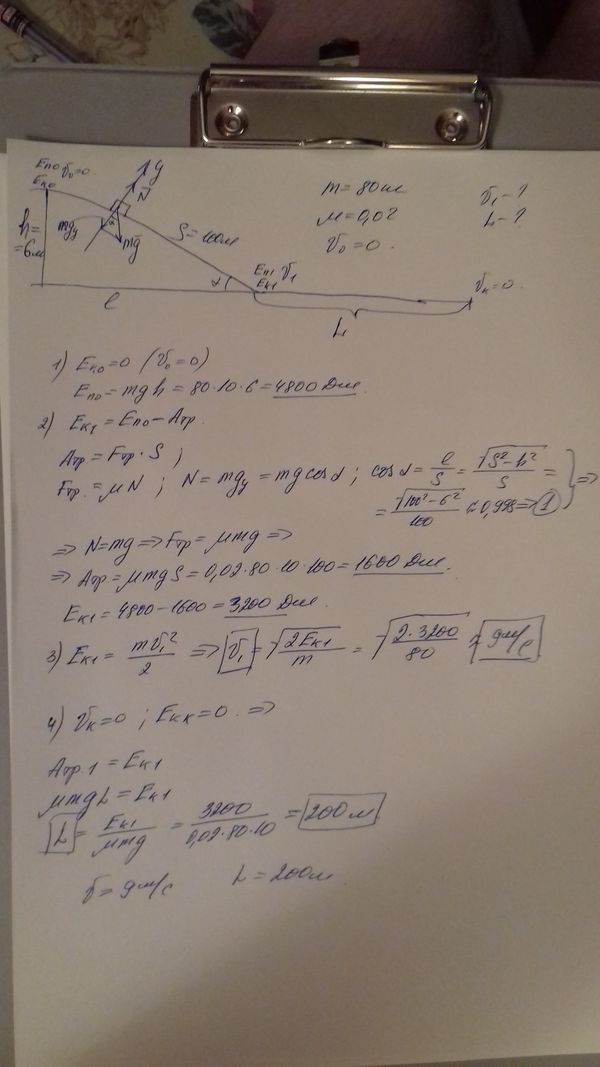 Eп0 v₀=0
Eк0
y
N̄
m=80кг
v₁-?
h=
=6м
mgy
α
mḡ
S=100м
μ=0,02
L-?
v₀=0.
α
Eп1 v₁
Eк1
vк=0.
l
L
1) Eк0=0 (v₀=0)
Eп0=mgh=80·10·6=4800Дж.
2) Eк1=Eп0-Aтр.
Aтр=Fтр·S;
Fтр.=μN; N=mgy=mgcosα; cosα=l/S=√(S²-h²)/S=
=√(100²-6²)/100≈0,998≈>1 } =>
=> N=mg => Fтр=μmg =>
=> Aтр=μmgS=0,02·80·10·100=1600Дж.
Eк1=4800-1600=3200Дж.
3) Eк1=mv₁²/2 => v₁=√(2Eк1/m)=√(2·3200/80)≈9м/с
4) vк=0; Eкк=0. =>
Aтр.1=Eк1
μmgL=Eк1
L=Eк1/μmg=3200/0,02·80·10=200м
v=9м/с L=200м.